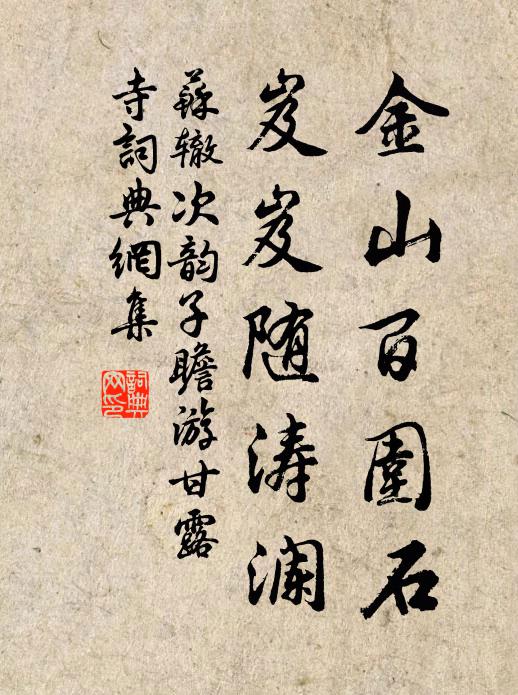 金山百圍石
岌岌随涛澜
蘇辙次韵子瞻游甘露
寺詞典網集
詞典
网印